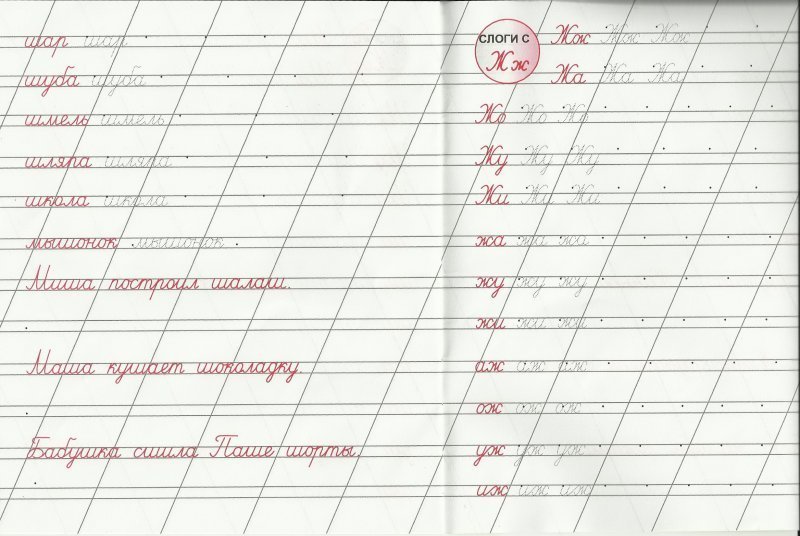 шар шар
шуба шуба
шмель шмель
шляпа шляпа
школа школа
мышонок мышонок
Миша построил шалаш.
Маша кушает шоколадку.
Бабушка сшила Паше шорты.
СЛОГИ С
Жж
Жж Жж Жж
Жа Жа Жа
Жо Жо Жо
Жу Жу Жу
Жи Жи Жи
жа жа жа
жу жу жу
жи жи жи
аж аж аж
ож ож ож
уж уж уж
иж иж иж